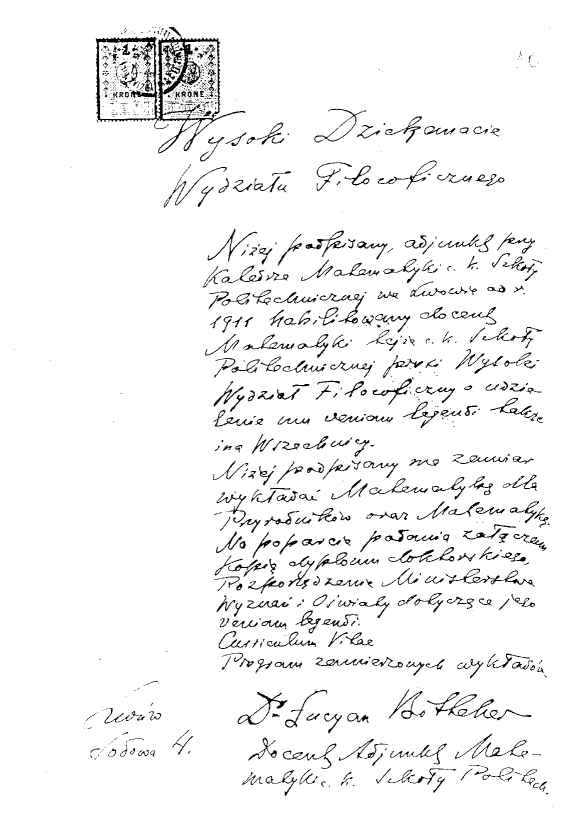 1 1
KRONE KRONE
Wysoki Dziekanacie
Wydziału Filozoficznego
Niżej podpisany, adjunkt przy
Katedrze Matematyki c. k. Szkoły
Politechnicznej we Lwowie od r.
1911 habilitowany docent
Matematyki tejże c. k. Szkoły
Politechnicznej prosi Wysoki
Wydział Filozoficzny o udzie-
lenie mu veniam legendi także
na Wszechnicy.
Niżej podpisany ma zamiar
wykładać Matematykę dla
Przyrodników oraz Matematykę
Na poparcie podania załączam
Kopię dyplomu doktorskiego,
Rozporządzenie Ministerstwa
Wyznań i Oświaty dotyczące jego
veniam legendi.
Curriculum Vitae
Program zamierzonych wykładów
Lwów
4.
Dr Lucyan Böttcher
Docent Adjunkt Mate-
matyki c. k. Szkoły Politech.